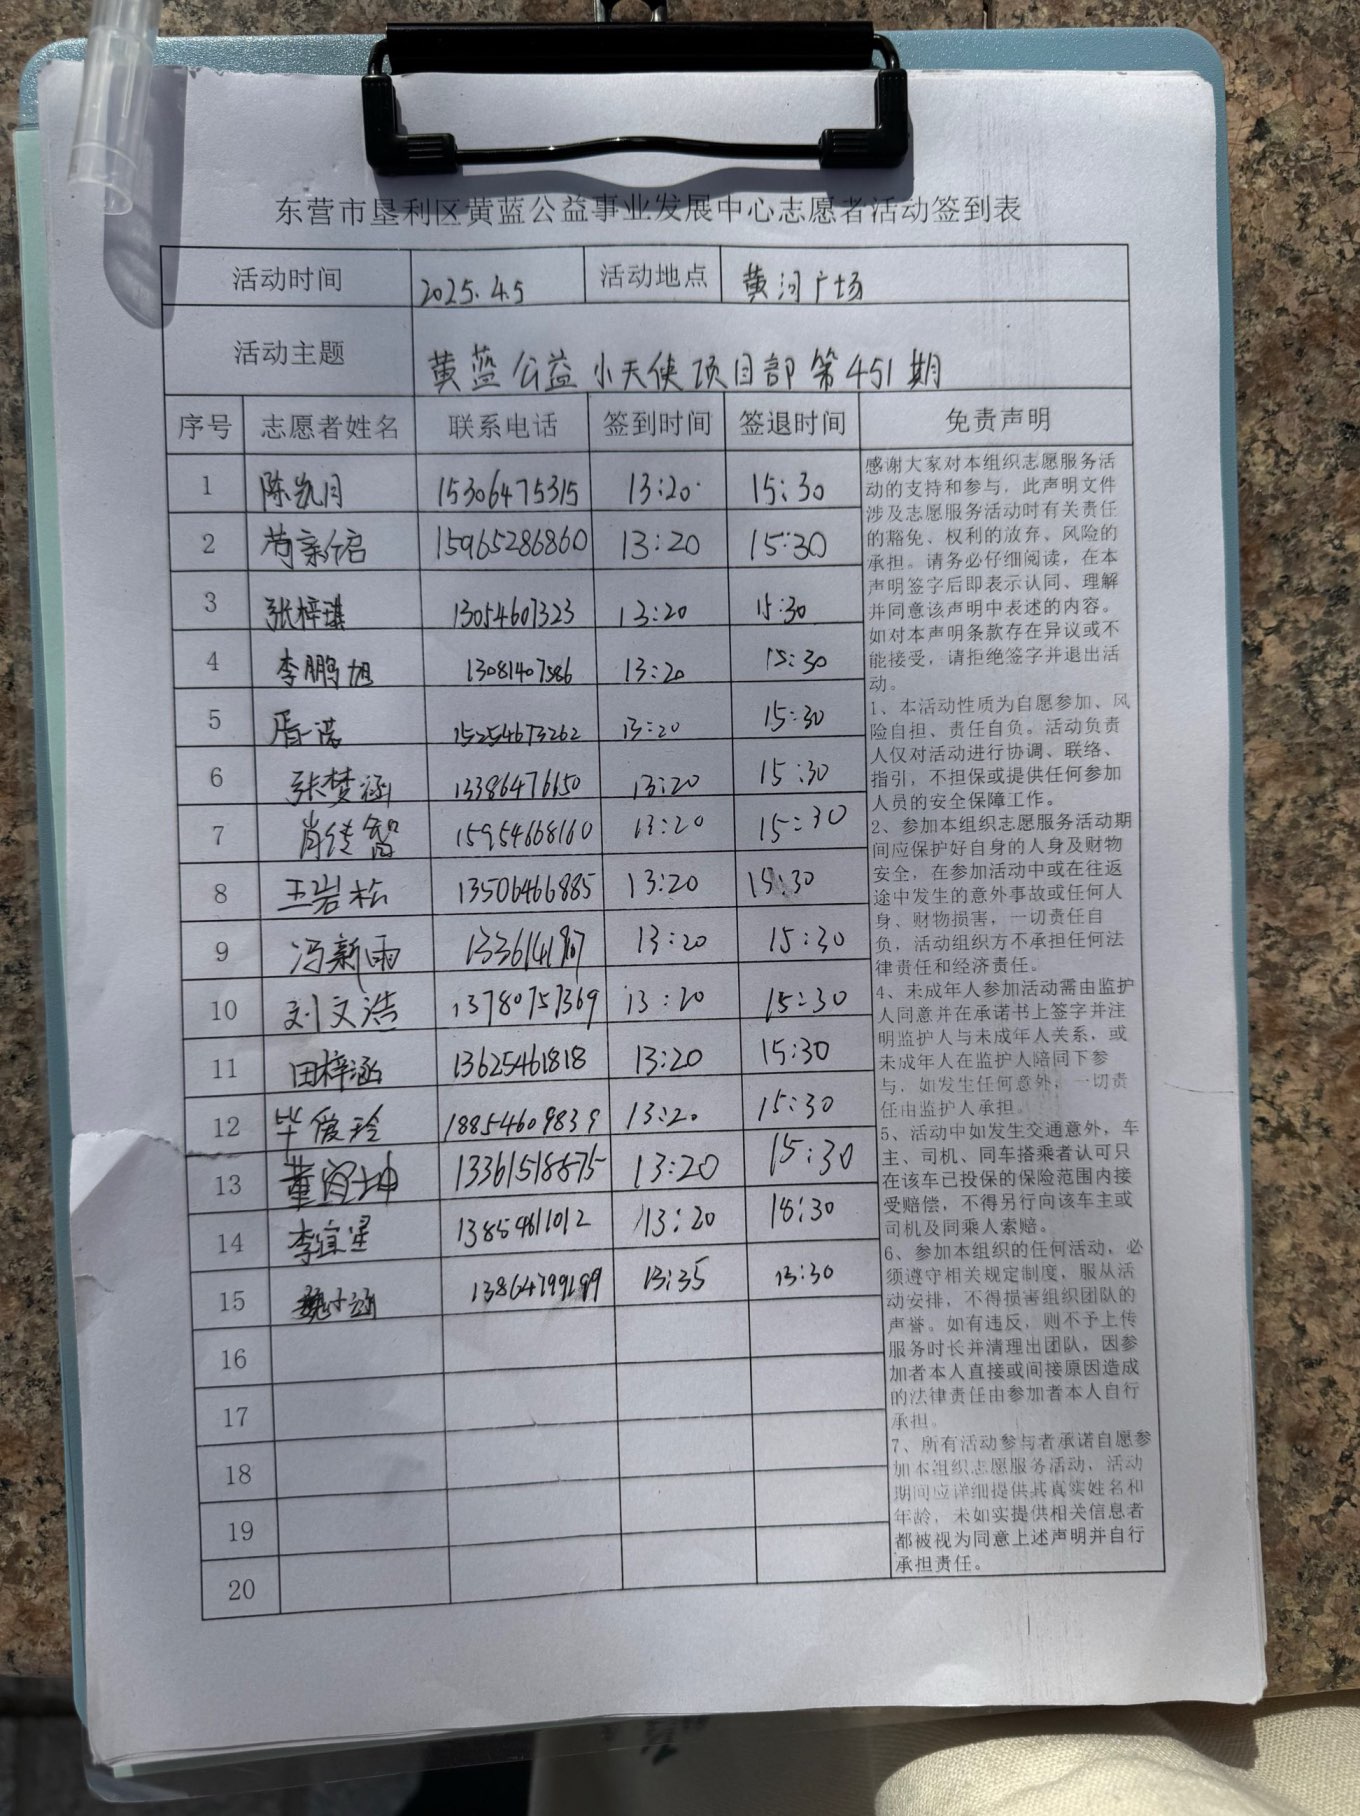 东营市垦利区黄蓝公益事业发展中心志愿者活动签到表
活动时间 2025.4.5 活动地点 黄河广场
活动主题 黄蓝公益小天使项目部第451期
序号 志愿者姓名 联系电话 签到时间 签退时间 免责声明
1 陈凯月 15306475315 13:20 15:30
2 15965286860 13:20 15:30
3 张梓琪 13054607323 13:20 15:30
4 李鹏旭 13081407586 13:20 15:30
5 15254673262 13:20 15:30
6 张梦涵 13386476150 13:20 15:30
7 肖传智 15954668160 13:20 15:30
8 王岩松 13506466885 13:20 15:30
9 冯新雨 13:20 15:30
10 刘文浩 13780757369 13:20 15:30
11 田梓涵 13625461818 13:20 15:30
12 毕俊玲 18854609839 13:20 15:30
13 13361518875 13:20 15:30
14 李宜星 13854611012 13:20 15:30
15 13864799199 13:35 13:30
16
17
18
19
20
感谢大家对本组织志愿服务活
动的支持和参与，此声明文件
涉及志愿服务活动时有关责任
的豁免、权利的放弃、风险的
承担。请务必仔细阅读，在本
声明签字后即表示认同、理解
并同意该声明中表述的内容。
如对本声明条款存在异议或不
能接受，请拒绝签字并退出活
动。
1、本活动性质为自愿参加、风
险自担、责任自负。活动负责
人仅对活动进行协调、联络、
指引，不担保或提供任何参加
人员的安全保障工作。
2、参加本组织志愿服务活动期
间应保护好自身的人身及财物
安全，在参加活动中或在往返
途中发生的意外事故或任何人
身、财物损害，一切责任自
负，活动组织方不承担任何法
律责任和经济责任。
4、未成年人参加活动需由监护
人同意并在承诺书上签字并注
明监护人与未成年人关系，或
未成年人在监护人陪同下参
与，如发生任何意外，一切责
任由监护人承担。
5、活动中如发生交通意外，车
主、司机、同车搭乘者认可只
在该车已投保的保险范围内接
受赔偿，不得另行向该车主或
司机及同乘人索赔。
6、参加本组织的任何活动，必
须遵守相关规定制度，服从活
动安排，不得损害组织团队的
声誉。如有违反，则不予上传
服务时长并清理出团队，因参
加者本人直接或间接原因造成
的法律责任由参加者本人自行
承担。
7、所有活动参与者承诺自愿参
加本组织志愿服务活动，活动
期间应详细提供其真实姓名和
年龄，未如实提供相关信息者
都被视为同意上述声明并自行
承担责任。